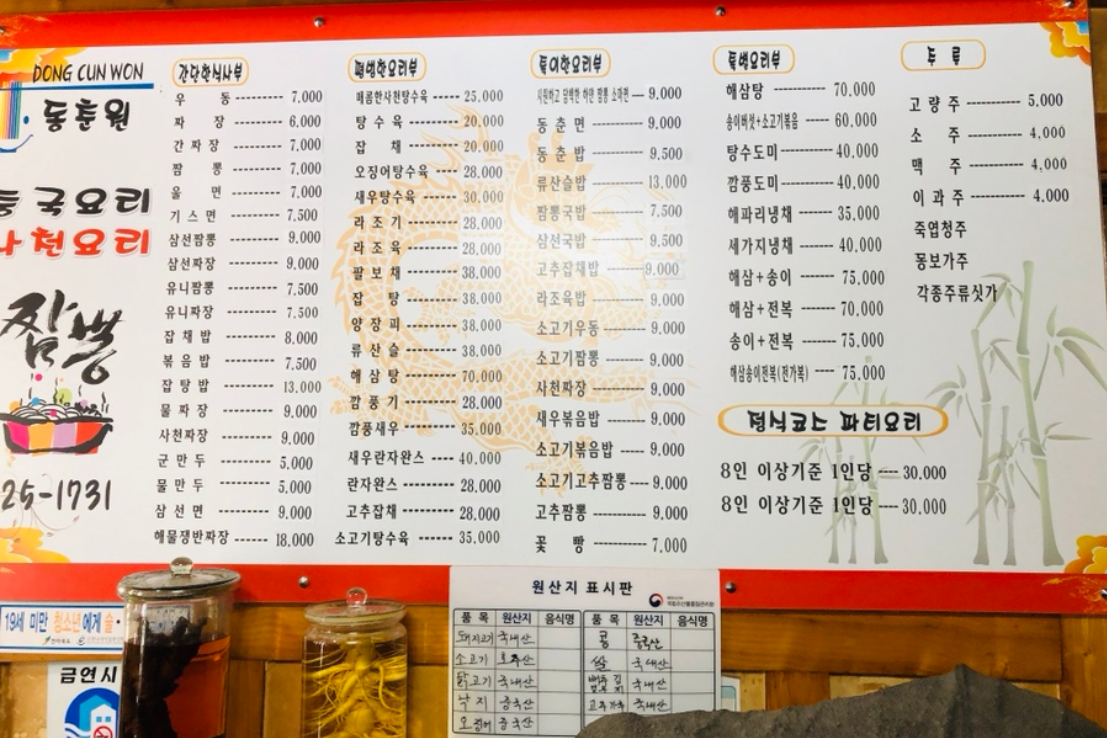 DONG CUN WON
동춘원
국요리
천요리
짬뽕
25-1731
간단한식사부
우 동 7,000
짜 장 6,000
간 짜 장 7,000
짬 뽕 7,000
울 면 7,000
기 스 면 7,500
삼선짬뽕 9,000
삼선짜장 9,000
유니짬뽕 7,500
유니짜장 7,500
잡 채 밥 8,000
볶 음 밥 7,500
잡 탕 밥 13,000
물 짜 장 9,000
사천짜장 9,000
군 만 두 5,000
물 만 두 5,000
삼 선 면 9,000
해물쟁반짜장 18,000
평범한요리부
매콤한사천탕수육 25,000
탕 수 육 20,000
잡 채 20,000
오징어탕수육 28,000
새우탕수육 30,000
라 조 기 28,000
라 조 육 28,000
팔 보 채 38,000
잡 탕 38,000
양 장 피 38,000
류 산 슬 38,000
해 삼 탕 70,000
깜 풍 기 28,000
깜풍새우 35,000
새우란자완스 40,000
란자완스 28,000
고추잡채 28,000
소고기탕수육 35,000
특이한요리부
시원하고 담백한 하얀 짬뽕 9,000
동 춘 면 9,000
동 춘 밥 9,500
류산슬밥 13,000
짬뽕국밥 7,500
삼선국밥 9,500
고추잡채밥 9,000
라조육밥 9,000
소고기우동 9,000
소고기짬뽕 9,000
사천짜장 9,000
새우볶음밥 9,000
소고기볶음밥 9,000
소고기고추짬뽕 9,000
고추짬뽕 9,000
꽃 빵 7,000
특별요리부
해삼탕 70,000
송이버섯+소고기볶음 60,000
탕수도미 40,000
깜풍도미 40,000
해파리냉채 35,000
세가지냉채 40,000
해삼+송이 75,000
해삼+전복 70,000
송이+전복 75,000
해삼송이전복(전가복) 75,000
정식코스 파티요리
8인 이상기준 1인당 30,000
8인 이상기준 1인당 30,000
주 류
고 량 주 5,000
소 주 4,000
맥 주 4,000
이 과 주 4,000
죽엽청주
몽보가주
각종주류싯가
19세 미만 청소년에게 술
금연시
원산지 표시판
품 목 원산지 음식명 품 목 원산지 음식명
돼지고기 국내산 콩 중국산
소고기 호주산 쌀 국내산
닭고기 국내산 국내산
낙지 중국산 고추가루 국내산
오징어 중국산